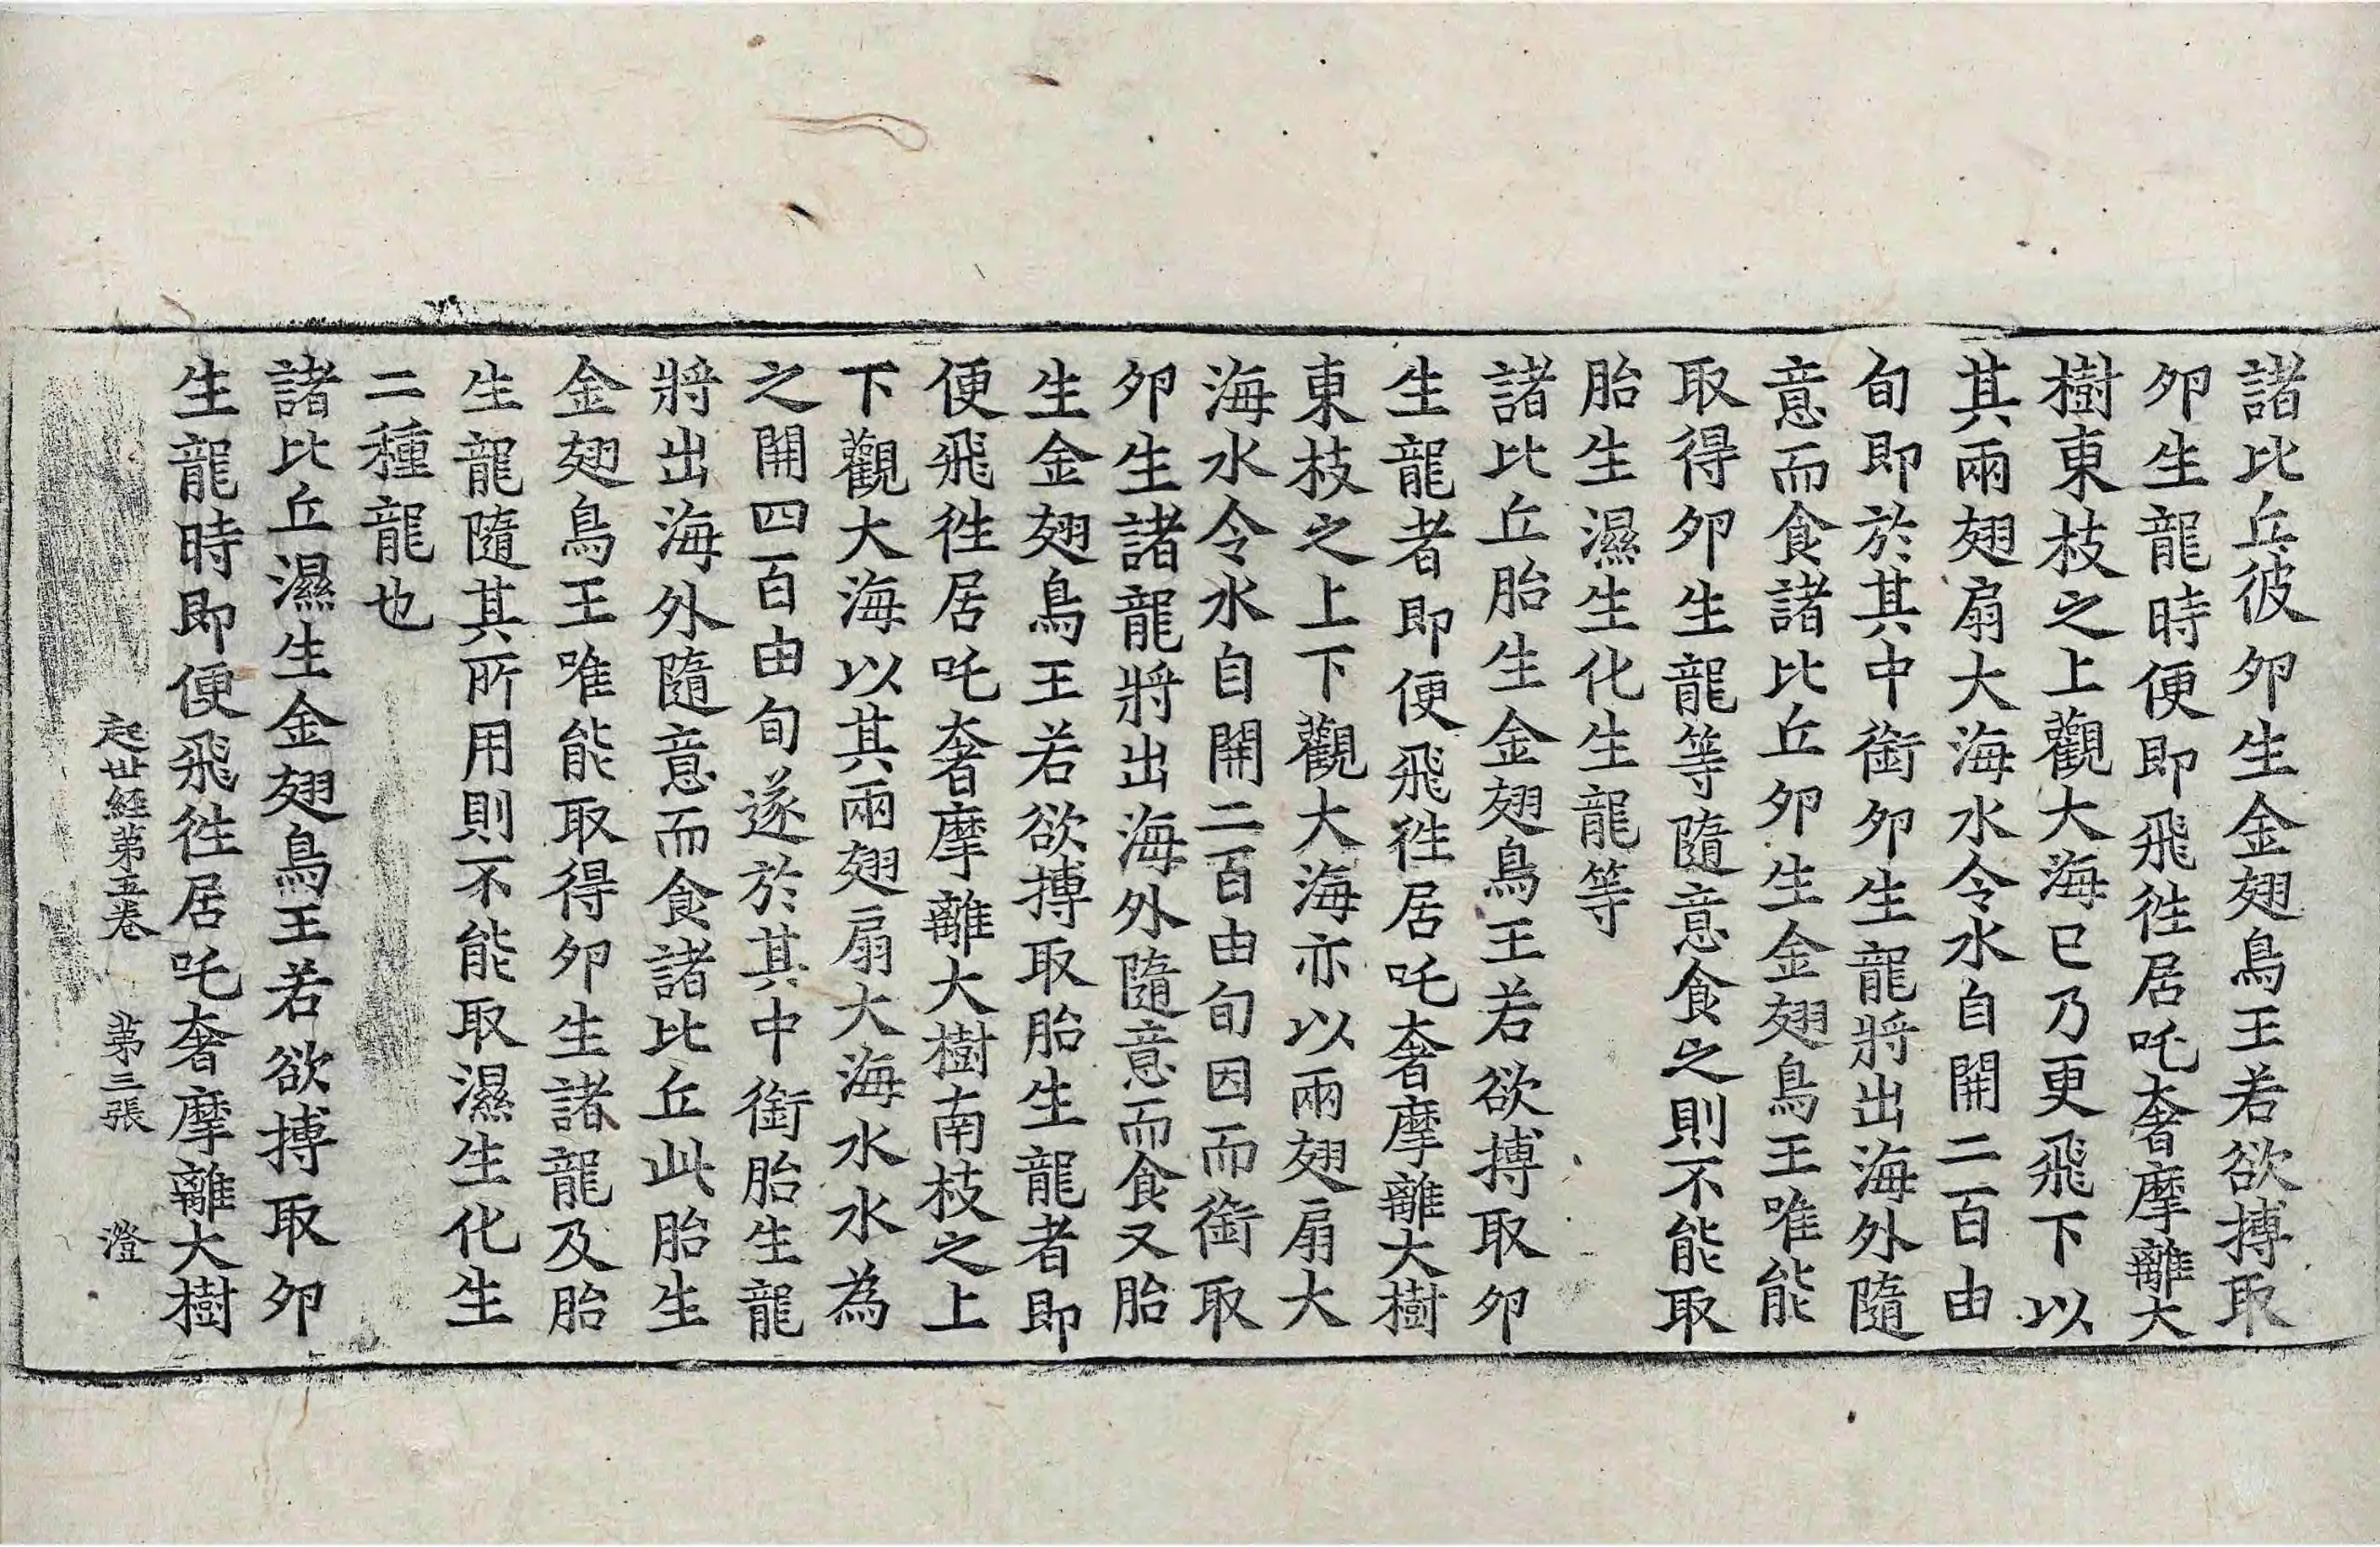 諸比丘彼夘生金翅鳥王若欲搏取
夘生龍時便即飛徃居吒奢摩離大
樹東枝之上觀大海已乃更飛下以
其兩翅扇大海水令水自開二百由
旬即於其中銜夘生龍將出海外隨
意而食諸比丘夘生金翅鳥王唯能
取得夘生龍等隨意食之則不能取
胎生濕生化生龍等
諸比丘胎生金翅鳥王若欲搏取夘
生龍者即便飛徃居吒奢摩離大樹
東枝之上下觀大海亦以兩翅扇大
海水令水自開二百由旬因而銜取
夘生諸龍將出海外隨意而食又胎
生金翅鳥王若欲搏取胎生龍者即
便飛徃居吒奢摩離大樹南枝之上
下觀大海以其兩翅扇大海水水為
之開四百由旬遂於其中銜胎生龍
將出海外隨意而食諸比丘此胎生
金翅鳥王唯能取得夘生諸龍及胎
生龍隨其所用則不能取濕生化生
二種龍也
諸比丘濕生金翅鳥王若欲搏取夘
生龍時即便飛徃居吒奢摩離大樹
起世経第五卷 第三張 澄